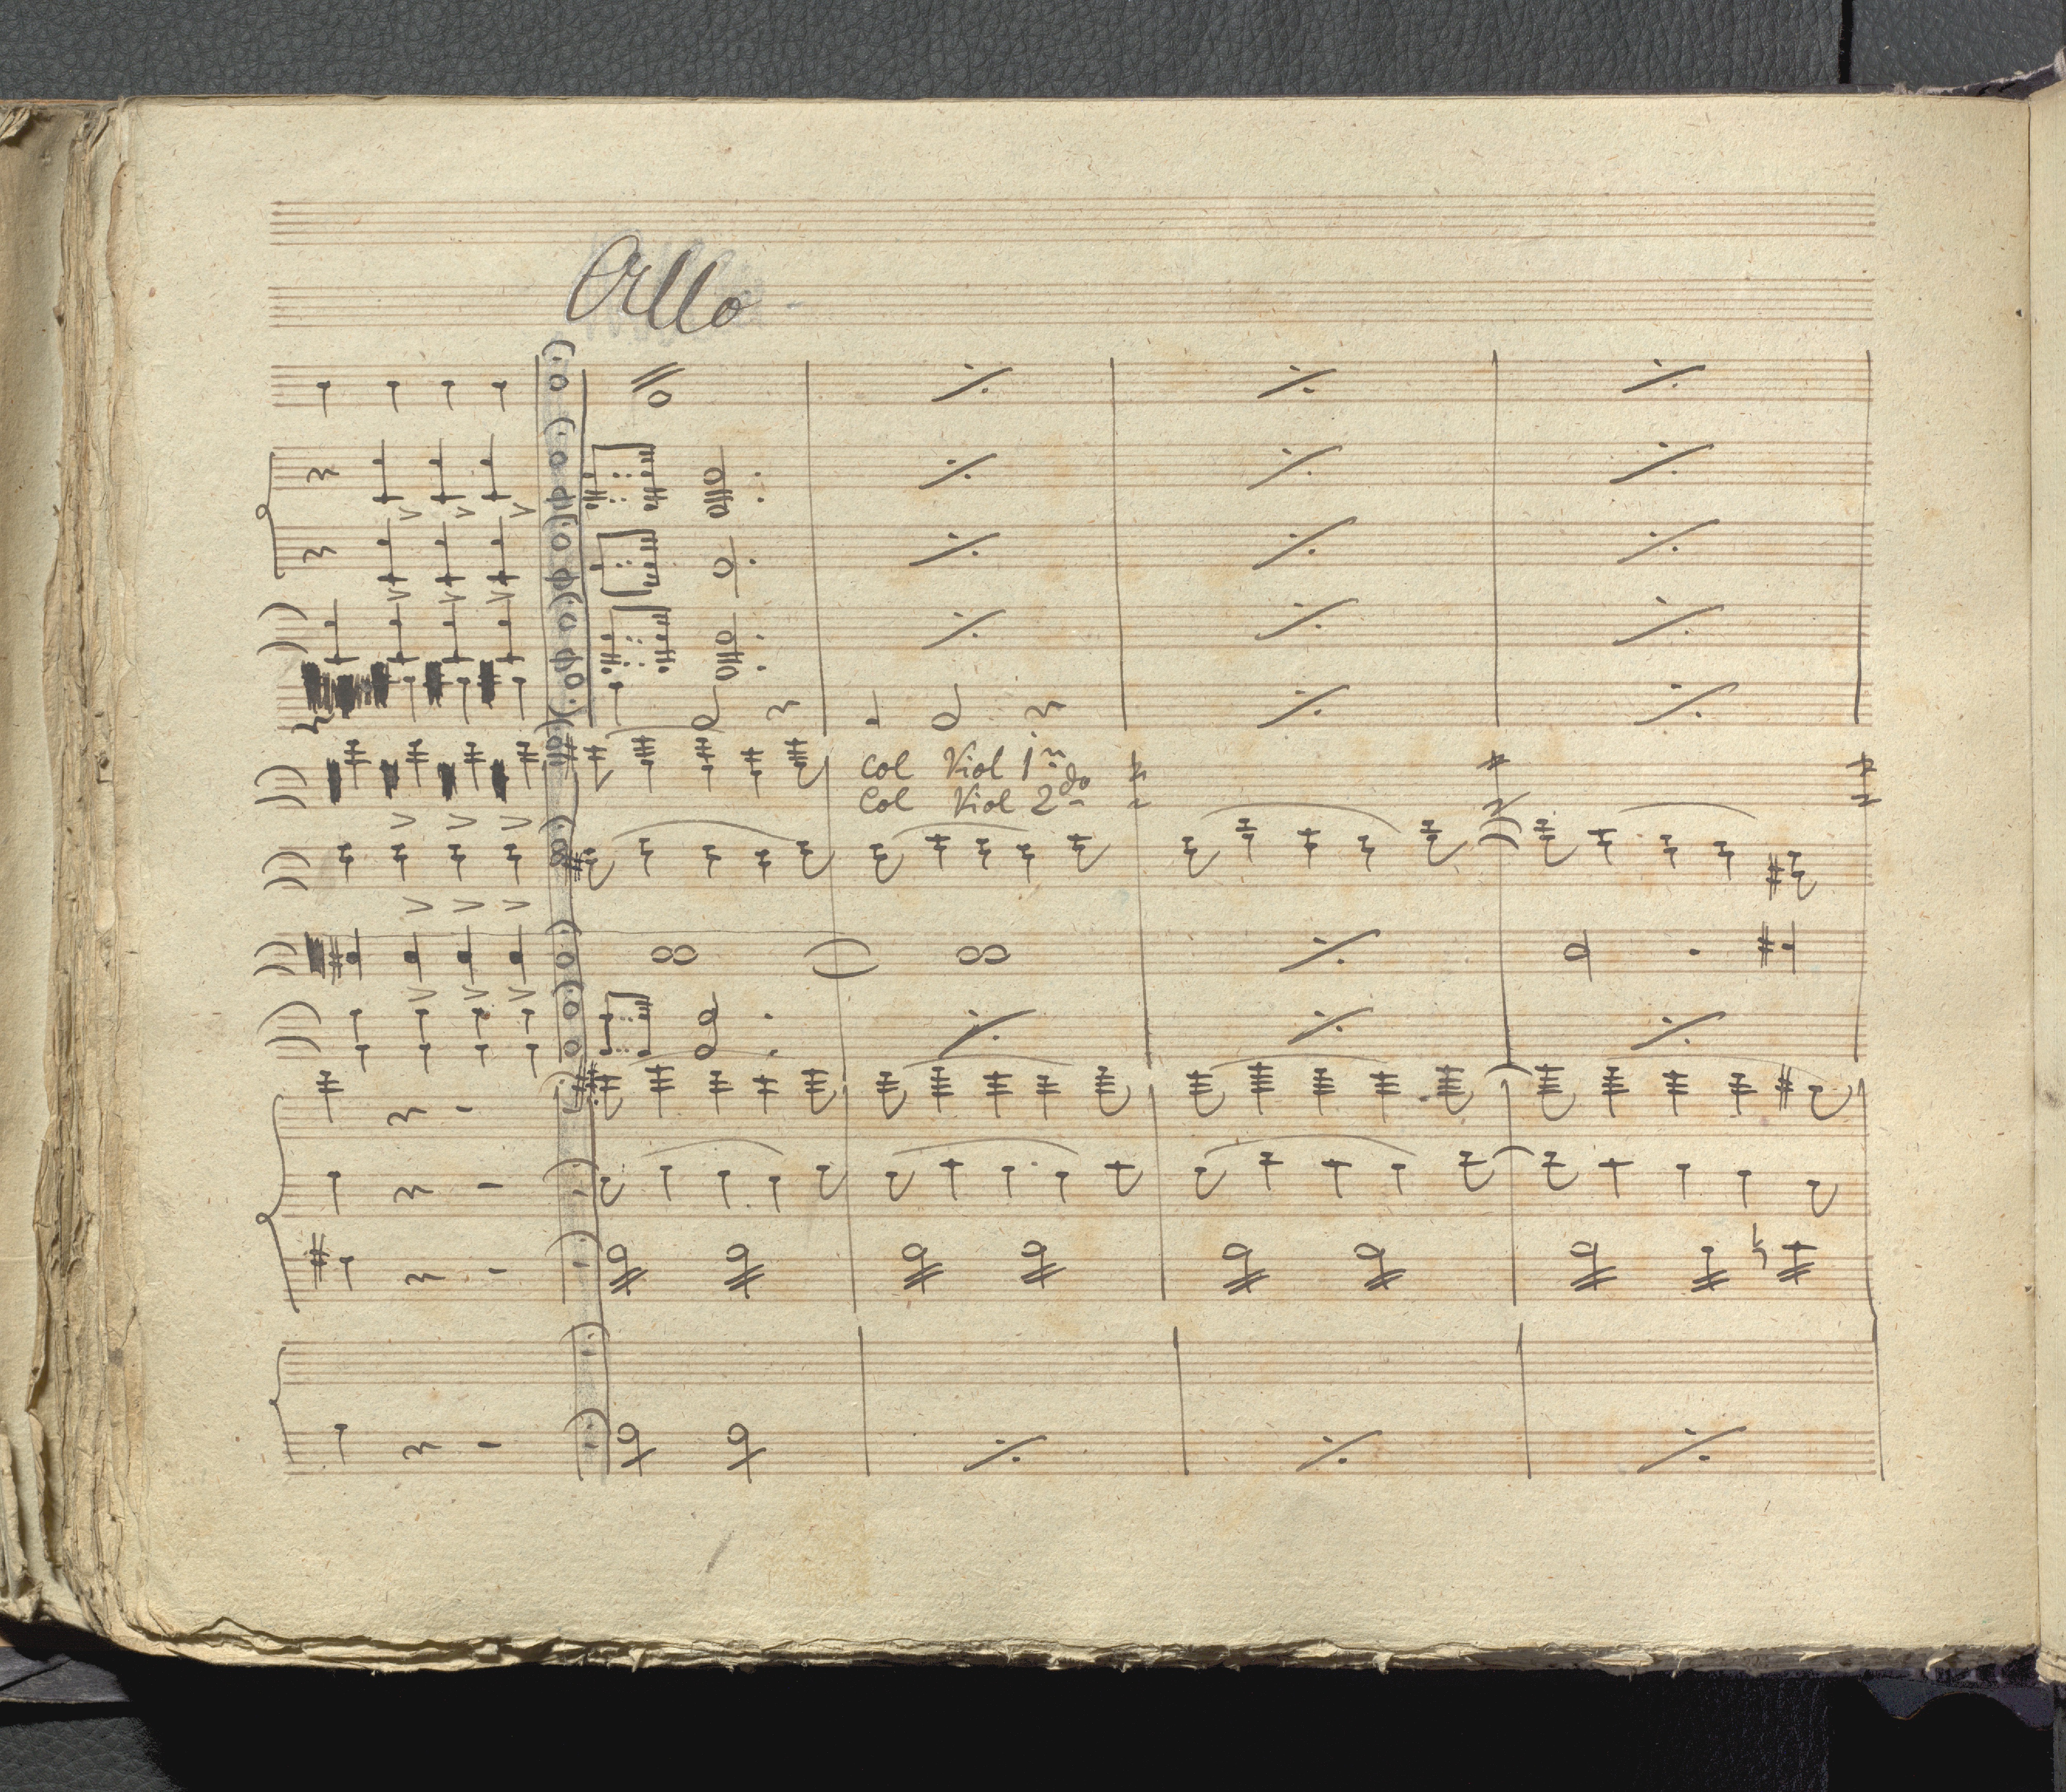 Allo
Col Viol 1º
Col Viol 2do